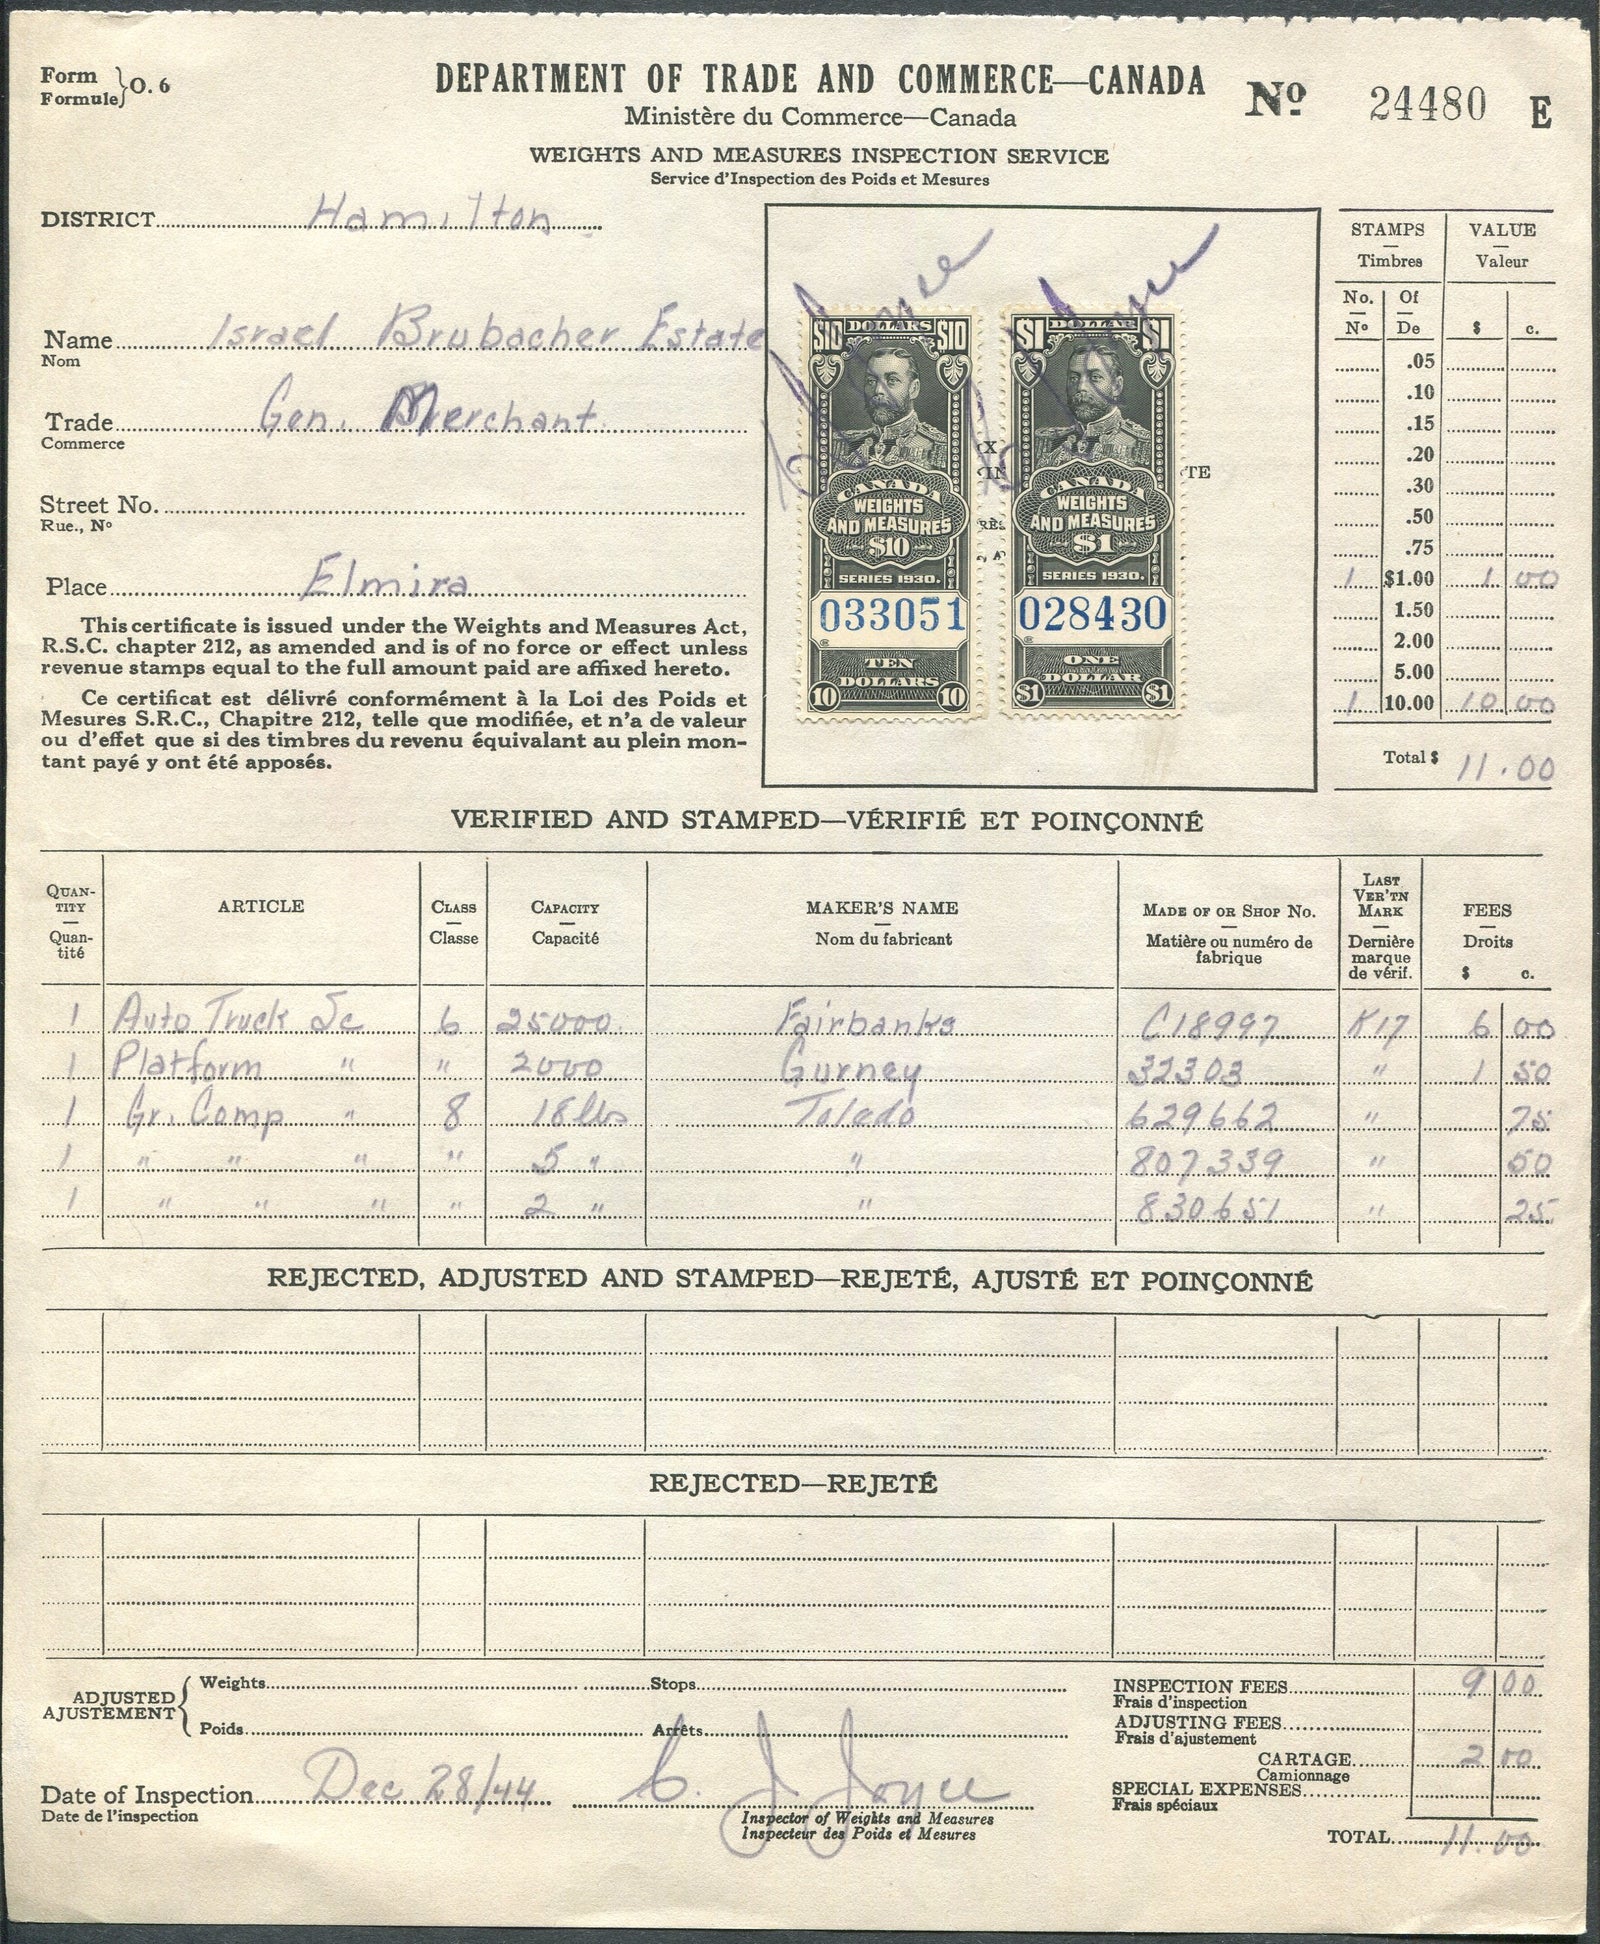 Form
Formule} O. 6
DEPARTMENT OF TRADE AND COMMERCE—CANADA
Ministère du Commerce—Canada
No 24480 E
WEIGHTS AND MEASURES INSPECTION SERVICE
Service d'Inspection des Poids et Mesures
DISTRICT Hamilton
Name Israel Brubacher Estate
Nom
Trade Gen. Merchant
Commerce
Street No.
Rue., No
Place Elmira
This certificate is issued under the Weights and Measures Act,
R.S.C. chapter 212, as amended and is of no force or effect unless
revenue stamps equal to the full amount paid are affixed hereto.
Ce certificat est délivré conformément à la Loi des Poids et
Mesures S.R.C., Chapitre 212, telle que modifiée, et n'a de valeur
ou d'effet que si des timbres du revenu équivalant au plein mon-
tant payé y ont été apposés.
$10 DOLLARS $10
CANADA
WEIGHTS
AND MEASURES
$10
SERIES 1930.
033051
TEN
DOLLARS
10 10
$1 DOLLAR $1
CANADA
WEIGHTS
AND MEASURES
$1
SERIES 1930.
028430
ONE
DOLLAR
$1 $1
X
IN
TE
RES
STAMPS VALUE
Timbres Valeur
No. Of
No De $ c.
.05
.10
.15
.20
.30
.50
.75
1 $1.00 1 00
1.50
2.00
5.00
1 10.00 10 00
Total $ 11.00
VERIFIED AND STAMPED—VÉRIFIÉ ET POINÇONNÉ
QUAN-
TITY
Quan-
tité
ARTICLE
CLASS
Classe
CAPACITY
Capacité
MAKER'S NAME
Nom du fabricant
MADE OF OR SHOP No.
Matière ou numéro de
fabrique
LAST
VER'TN
MARK
Dernière
marque
de vérif.
FEES
Droits
$ c.
1 Auto Truck Sc 6 25000 Fairbanks C18997 K17 6 00
1 Platform " " 2000 Gurney 32303 " 1 50
1 Gr. Comp " 8 18 lbs Toledo 629662 " 75
1 " " " " 5 " " 807339 " 50
1 " " " " 2 " " 830651 " 25
REJECTED, ADJUSTED AND STAMPED—REJETÉ, AJUSTÉ ET POINÇONNÉ
REJECTED—REJETÉ
ADJUSTED
AJUSTEMENT
Weights Stops
Poids Arrêts
INSPECTION FEES 9 00
Frais d'inspection
ADJUSTING FEES
Frais d'ajustement
CARTAGE 2 00
Camionnage
SPECIAL EXPENSES
Frais spéciaux
TOTAL 11.00
Date of Inspection Dec 28/44
Date de l'inspection
C. J. Joyce
Inspector of Weights and Measures
Inspecteur des Poids et Mesures